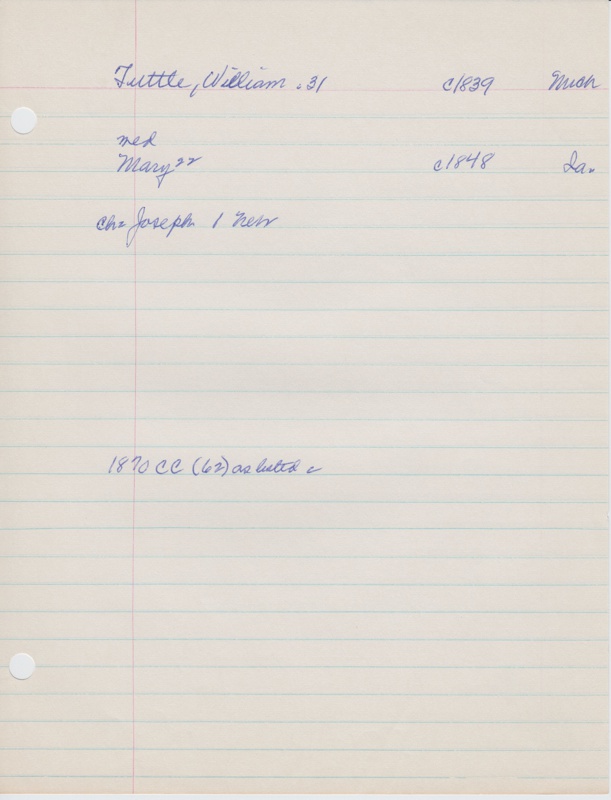 Tuttle, William . 31 c1839 Mich
med
Mary 22 c1848 Ia.
Ch= Joseph 1 Nev
1870 CC (62) as listed